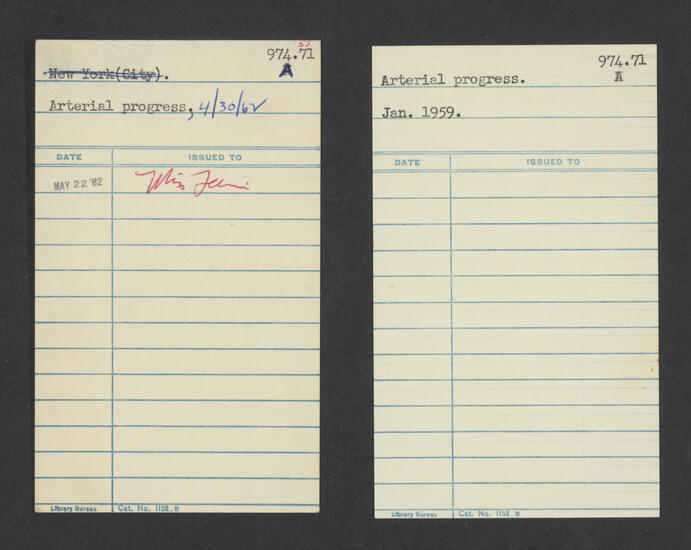 974.71
New York(City).
A
Arterial progress, 4/30/62
DATE ISSUED TO
MAY 22 '62 Miss
Library Bureau Cat. No. 1152.B
974.71
A
Arterial progress.
Jan. 1959.
DATE ISSUED TO
Library Bureau Cat. No. 1152.B